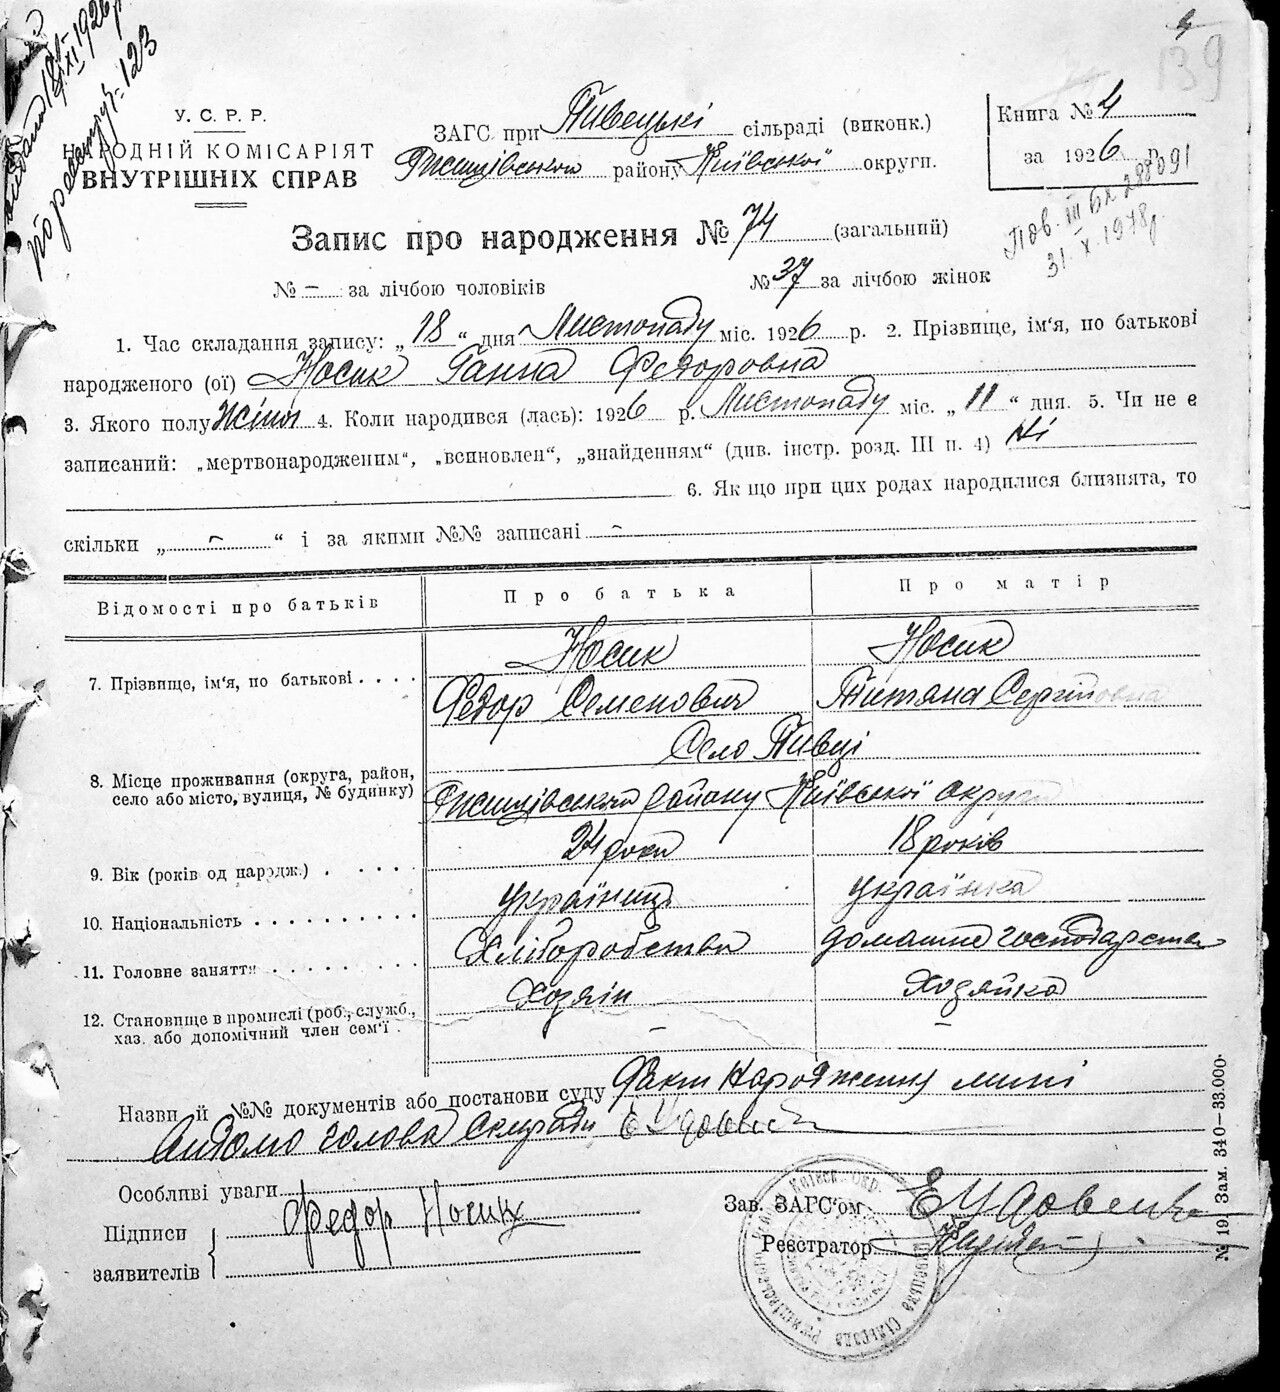 4
139
У. С. Р. Р.
НАРОДНІЙ КОМІСАРІЯТ
ВНУТРІШНІХ СПРАВ
ЗАГС при Пивецькі сільраді (виконк.)
Ржищівськом району Київської округи.
Книга № 4
за 1926 р.
Пов. III БК 288091
31. X. 1978р.
Запис про народження № 74 (загальний)
№ – за лічбою чоловіків № 37 за лічбою жінок
1. Час складання запису: „ 18 “ дня Листопаду міс. 1926 р. 2. Прізвище, ім'я, по батькові
народженого (ої) Носик Ганна Федоровна
3. Якого полу жіноч 4. Коли народився (лась): 1926 р. Листопаду міс. „ 11 “ дня. 5. Чи не є
записаний: „мертвонародженим“, „всиновлен“, „знайденням“ (див. інстр. розд. III п. 4) Ні
6. Як що при цих родах народилися близнята, то
скільки „ – “ і за якими №№ записані –
Відомості про батьків Про батька Про матір
Носик Носик
7. Прізвище, ім'я, по батькові . . . .
Федор Семенович Титяна Сергіївна
Село Пивці
8. Місце проживання (округа, район,
село або місто, вулиця, № будинку)
Ржищівськом району Київської округи
24 роки 18 років
9. Вік (років од народж.) . . . . .
україниць українка
10. Національність . . . . . . . . .
Хліборобство домашне господарство
11. Головне заняття . . . . . . . .
Хозяін Хозяйка
12. Становище в промислі (роб., служб.,
хаз. або допомічний член сем'ї .
– –
Назви й №№ документів або постанови суду Факт Народження мині
Відомо голова Сельради Е Удовенко
Особливі уваги
Підписи
заявителів
Федор Носик
Зав. ЗАГС'ом Е Удовенко
Реєстратор
№ 19. Зам. 340—33.000.